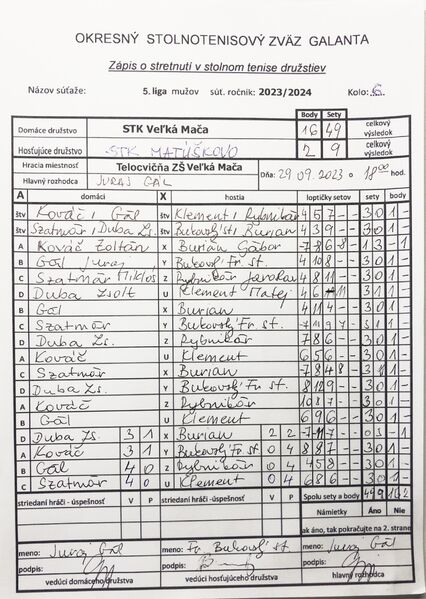 OKRESNÝ STOLNOTENISOVÝ ZVÄZ GALANTA
Zápis o stretnutí v stolnom tenise družstiev
Názov súťaže: 5. liga mužov súť. ročník: 2023/2024 Kolo: 6.
Body Sety
Domáce družstvo STK Veľká Mača 16 49 celkový výsledok
Hosťujúce družstvo STK MATÚŠKOVO 2 9 celkový výsledok
Hracia miestnosť Telocvičňa ZŠ Veľká Mača Dňa: 29.09.2023 o 18:00 hod.
Hlavný rozhodca JURAJ GÁL
A domáci X hostia loptičky setov sety body
štv Kováč, Gál štv Klement, Rybnikár 4 5 7 - - 3 0 1 -
štv Szatmár, Duba Zs. štv Bukovský, Burian 4 3 9 - - 3 0 1 -
A Kováč Zoltán X Burian Gábor 1 3 - 1
B Gál Juraj Y Bukovský Fr. st. 4 10 8 - - 3 0 1 -
C Szatmár Mikloš Z Rybnikár Jaroslav 4 8 11 - - 3 0 1 -
D Duba Zsolt U Klement Matej 3 1 1 -
B Gál X Burian 4 11 4 - - 3 0 1 -
C Szatmár Y Bukovský Fr. st. 3 1 1 -
D Duba Zs. Z Rybnikár 7 8 6 - - 3 0 1 -
A Kováč U Klement 6 5 6 - - 3 0 1 -
C Szatmár X Burian 3 1 1 -
D Duba Zs. Y Bukovský Fr. st. 3 0 1 -
A Kováč Z Rybnikár 10 8 7 - - 3 0 1 -
B Gál U Klement 6 9 6 - - 3 0 1 -
D Duba Zs. 3 1 X Burian 2 2 0 3 - 1
A Kováč 3 1 Y Bukovský Fr. st. 0 4 8 8 7 - - 3 0 1 -
B Gál 4 0 Z Rybnikár 0 4 4 5 8 - - 3 0 1 -
C Szatmár 4 0 U Klement 0 4 6 8 6 - - 3 0 1 -
striedaní hráči - úspešnosť V P striedaní hráči - úspešnosť V P Spolu sety a body 49 9 16 2
Námietky Áno Nie
ak áno, tak pokračujte na 2. strane
meno: Juraj Gál meno: Fr. Bukovský st. meno: Juraj Gál
podpis: podpis: podpis:
vedúci domáceho družstva vedúci hosťujúceho družstva hlavný rozhodca